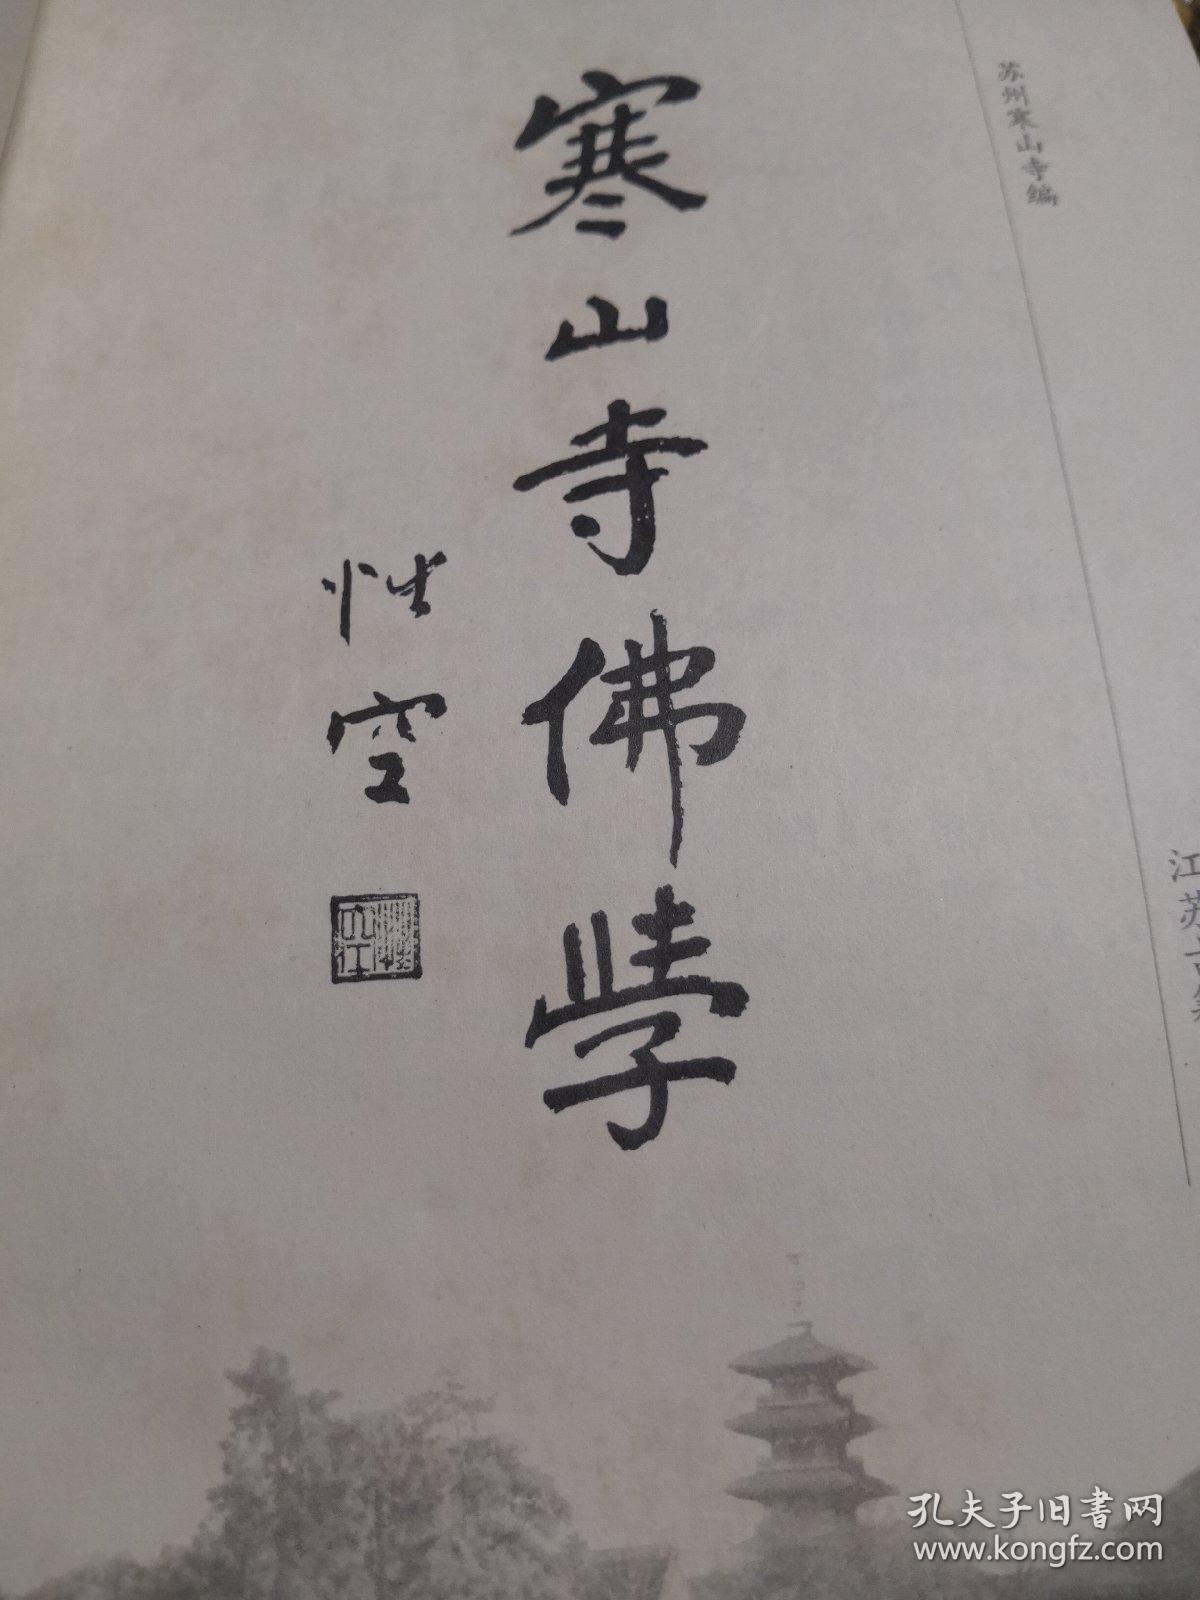 苏州寒山寺编
江苏古籍
寒山寺佛學
性空
孔夫子旧書网
www.kongfz.com